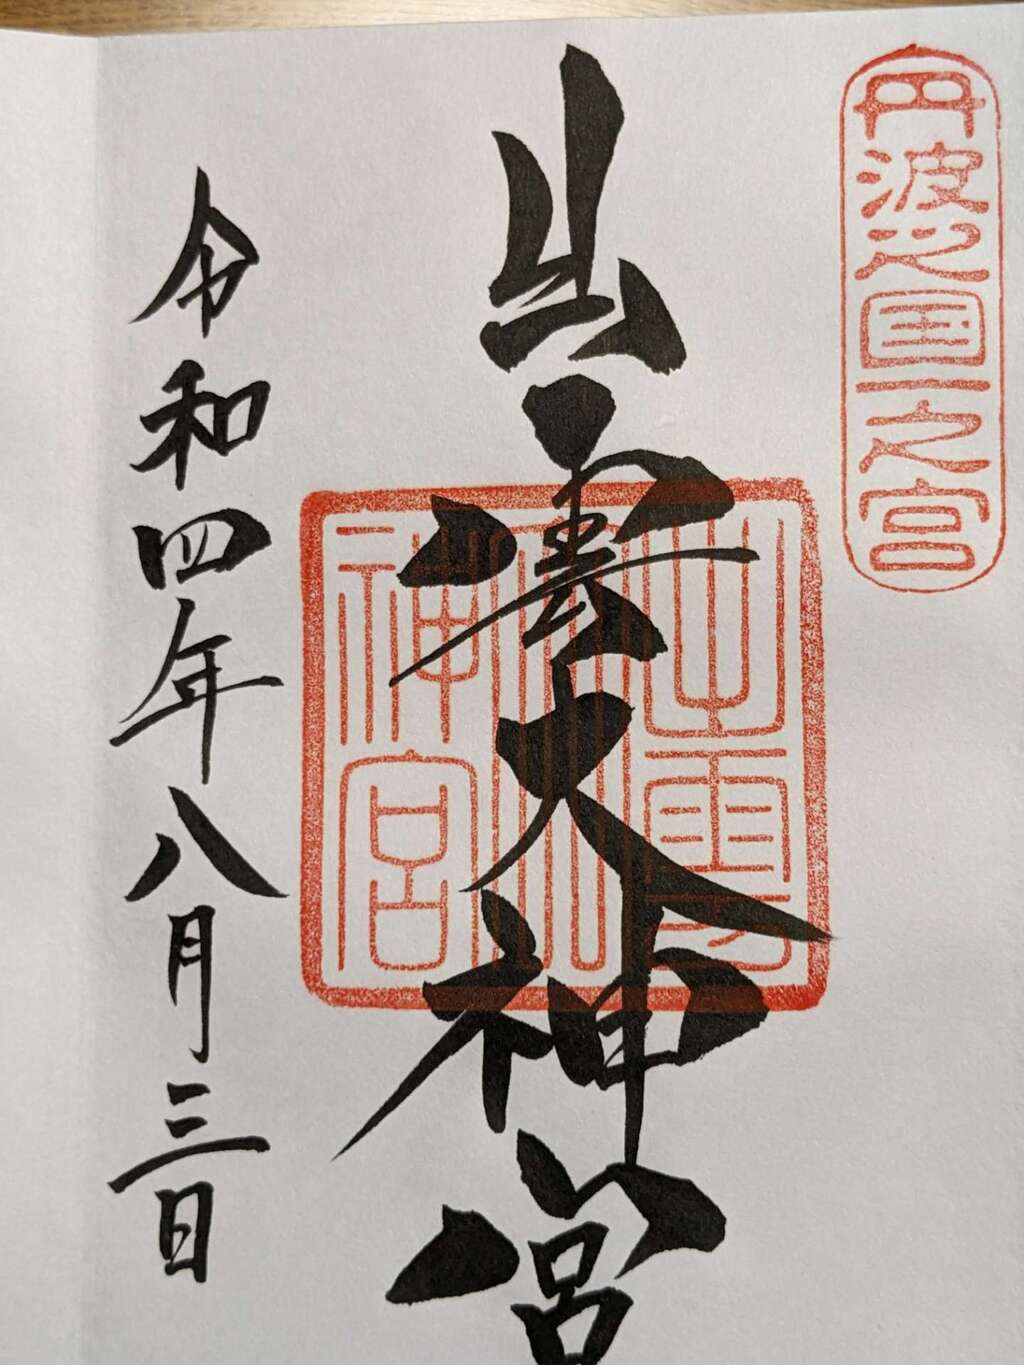 丹波之国一之宮
出雲大神宮
令和四年八月三日